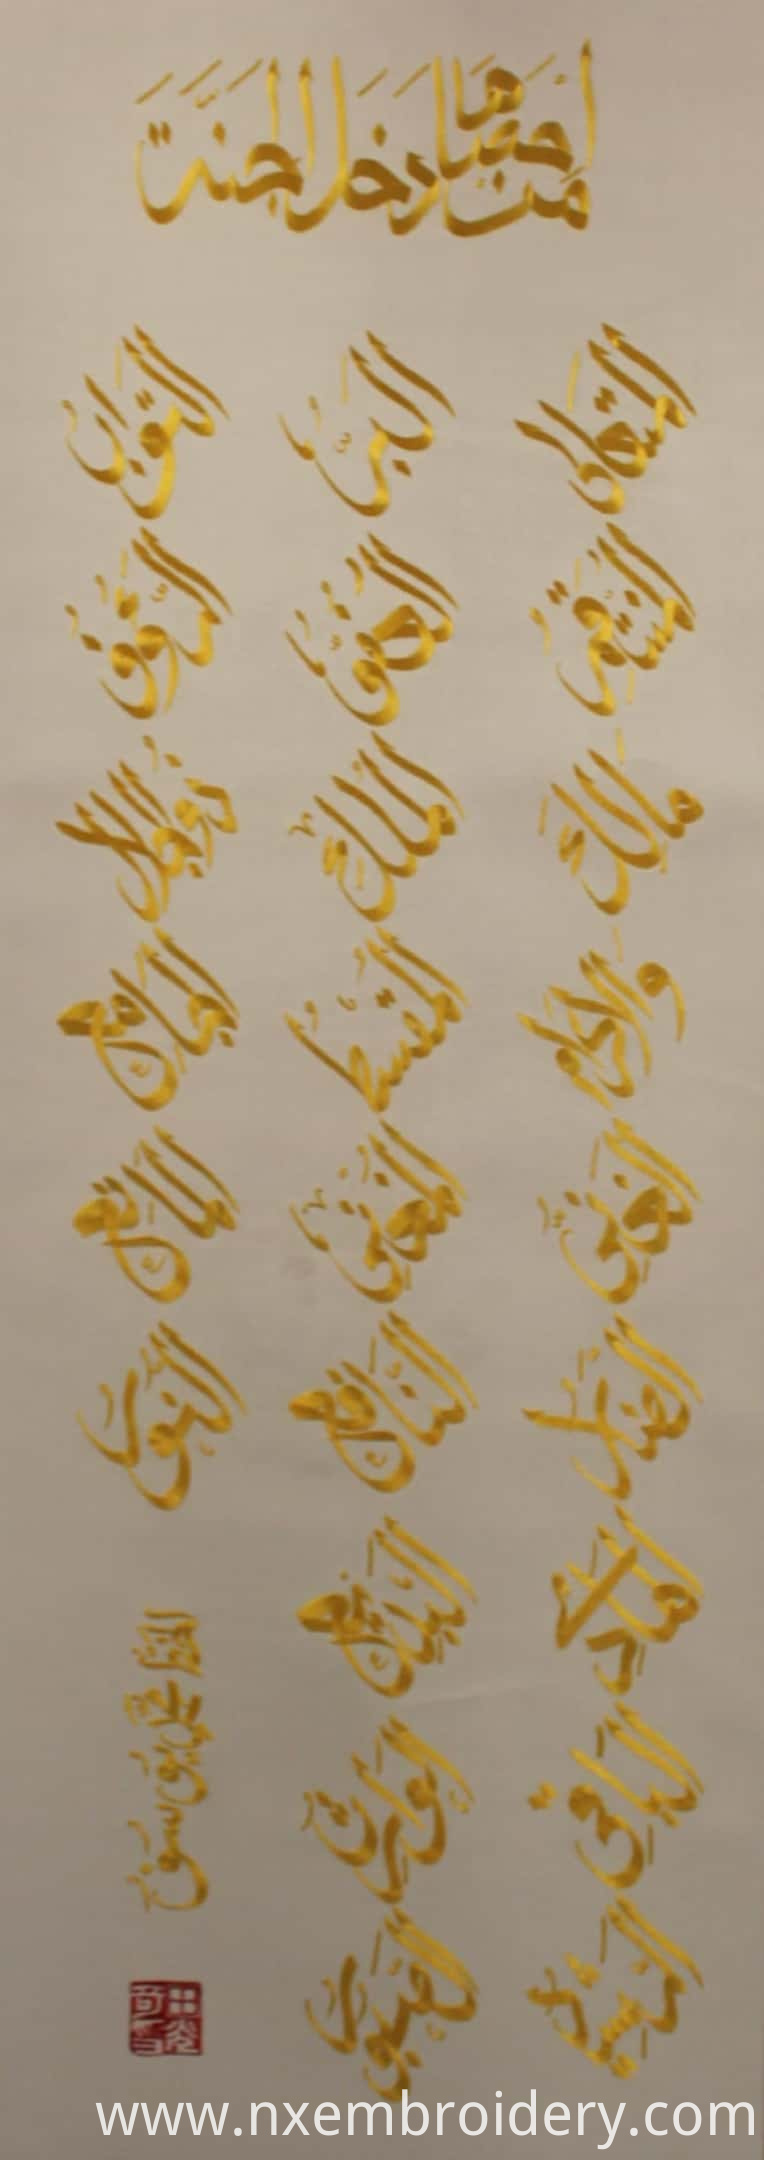 من أحصاها دخل الجنة
المتعال البر التواب
المنتقم العفو الرءوف
مالك الملك ذو الجلال
والإكرام المقسط الجامع
الغني المغني المانع
الضار النافع النور
الهادي البديع
الباقي الوارث
الرشيد الصبور
www.nxembroidery.com